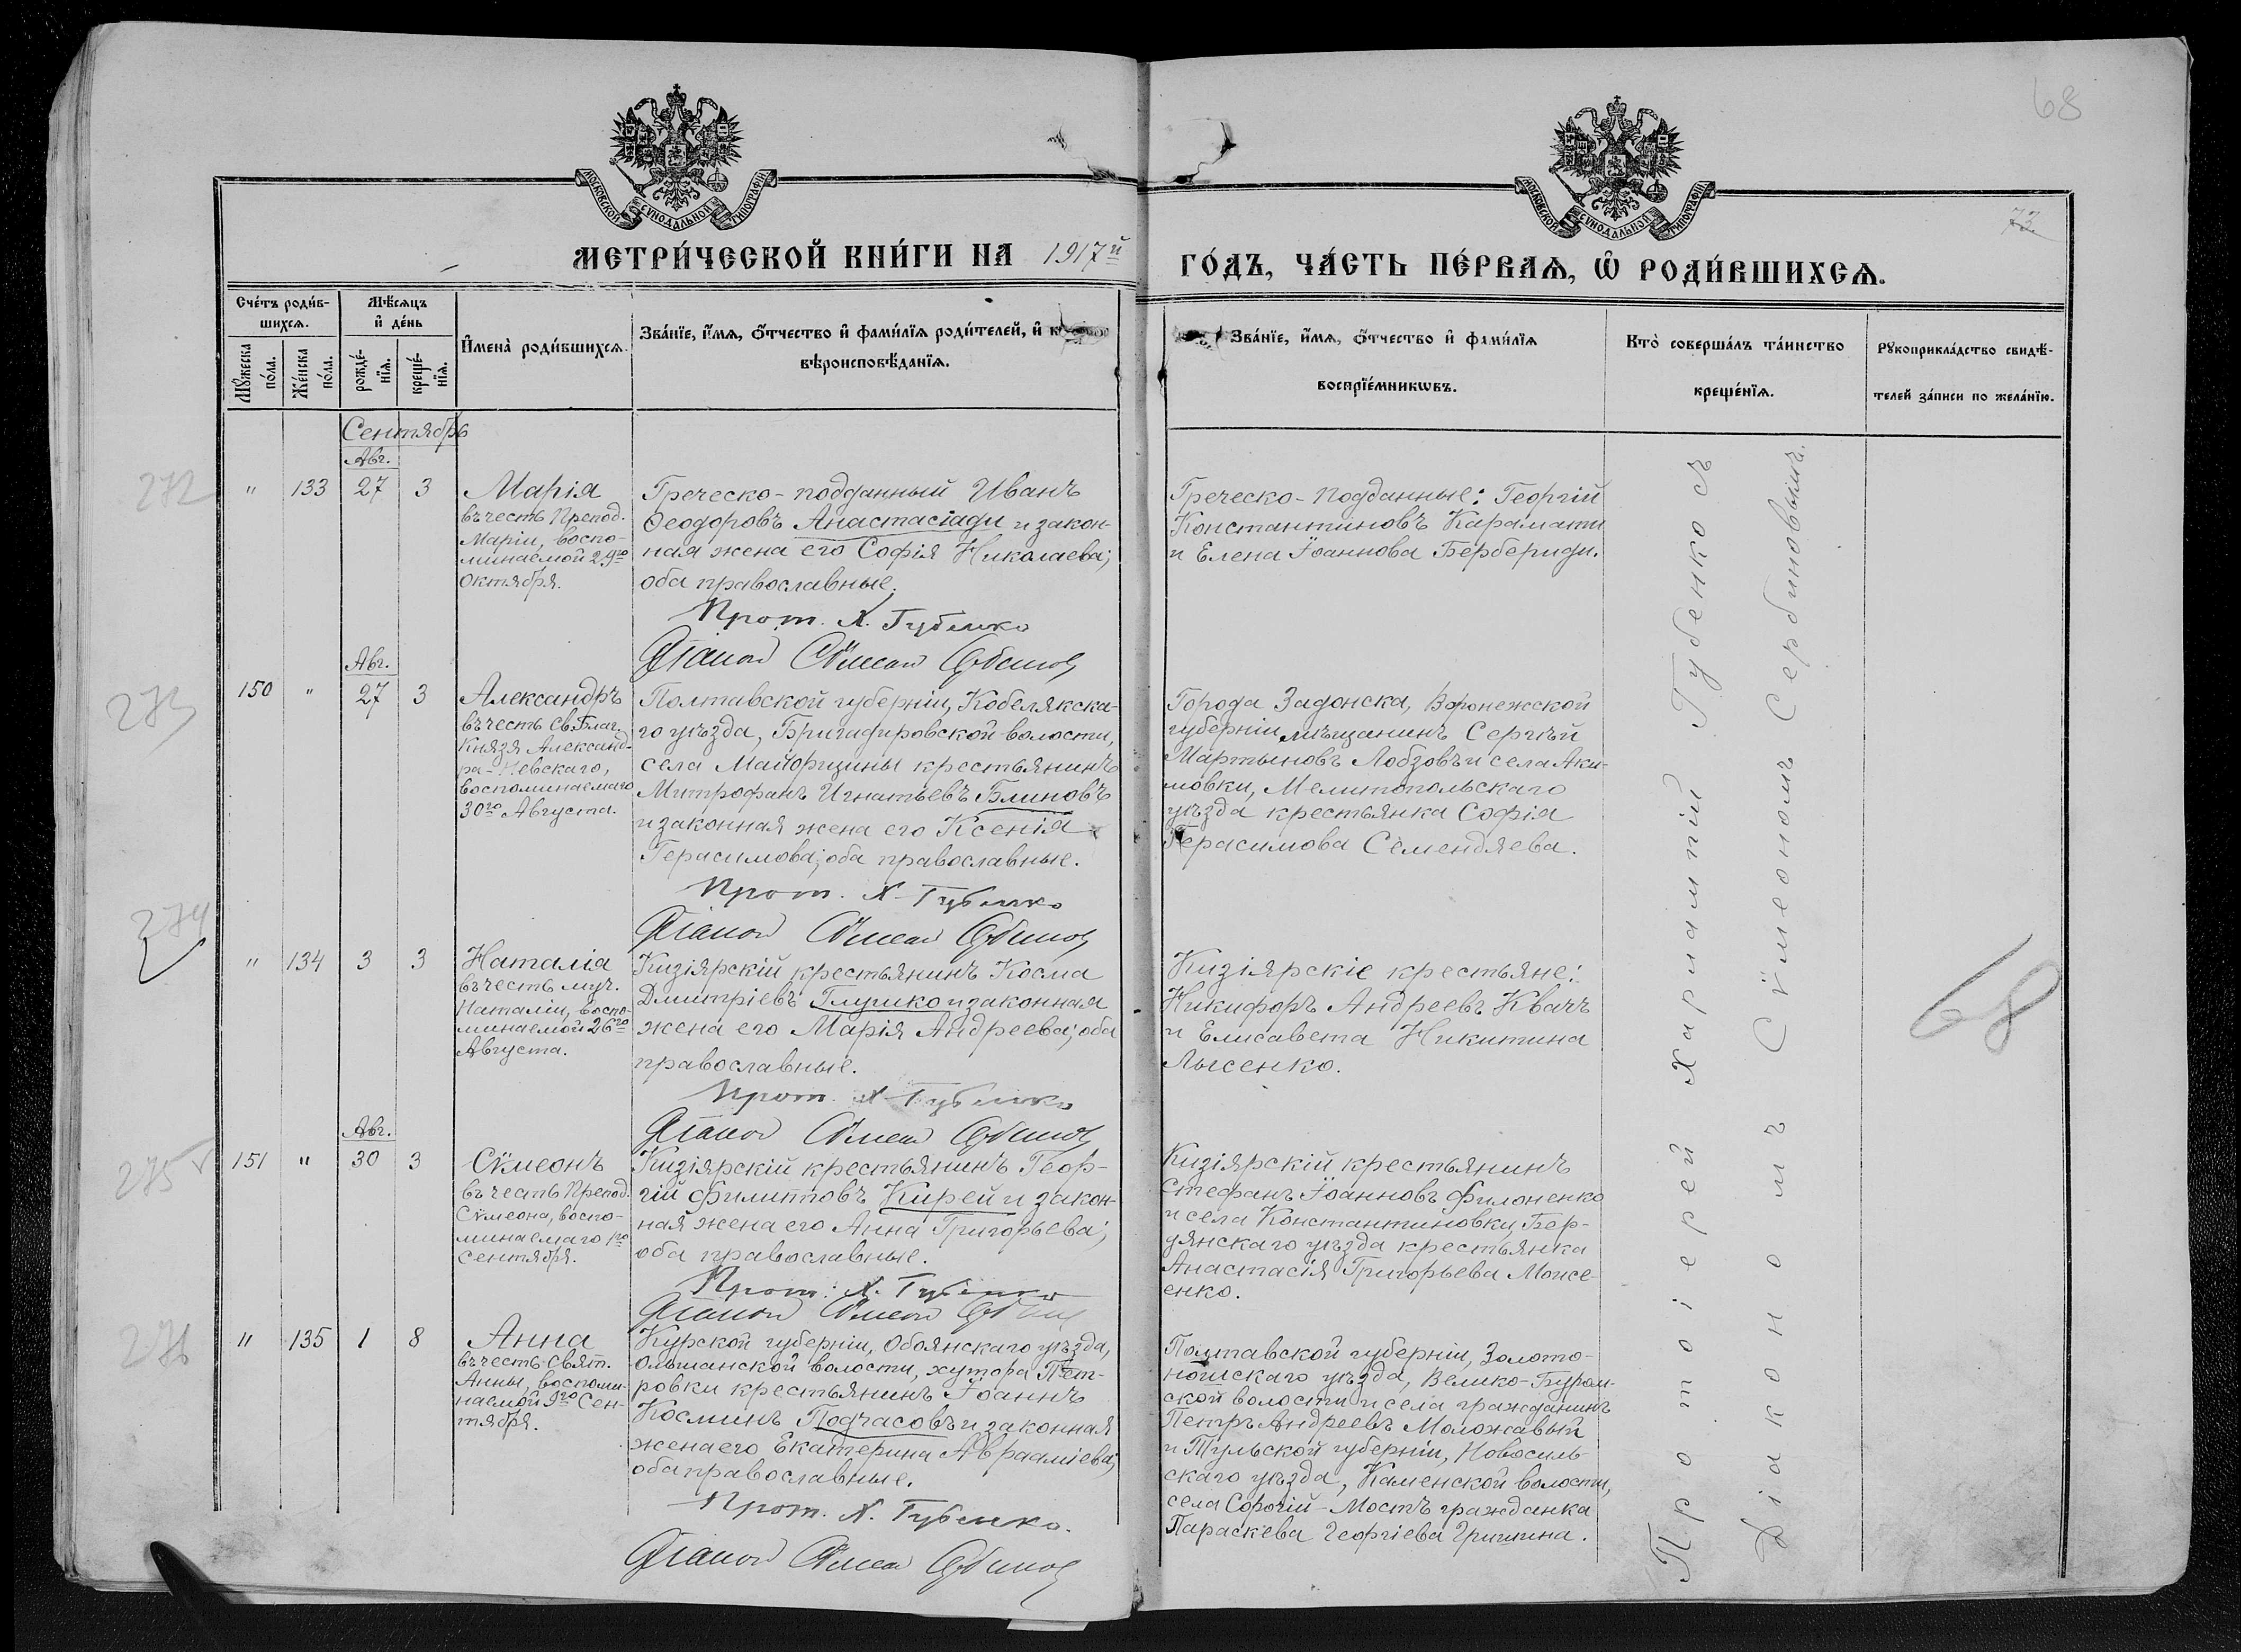 68
МОСКОВСКОЙ СУНОДАЛЬНОЙ ТИПОГРАФІИ
МОСКОВСКОЙ СУНОДАЛЬНОЙ ТИПОГРАФІИ
73
МЕТРИ́ЧЕСКОЙ КНИ́ГИ НА 1917й
ГО́ДЪ, ЧА́СТЬ ПЕ́РВАѦ, Ѡ҆ РОДИ́ВШИХСѦ.
Сче́тъ роди́в-
шихсѧ.
Мꙋжеска по́ла.
Же́нска по́ла.
Мѣ́сѧцъ
и҆ де́нь
рожде́-
нїѧ.
креще́-
нїѧ.
И҆мена̀ роди́вшихсѧ.
Зва́нїе, и҆́мѧ, ѻ҆́тчество и҆ фами́лїѧ роди́телей, и҆
вѣроисповѣ́данїѧ.
Зва́нїе, и҆́мѧ, ѻ҆́тчество и҆ фами́лїѧ
воспрїе́мникѡвъ.
Кто̀ соверша́лъ та́инство
креще́нїѧ.
Рꙋкоприкла́дство свидѣ́-
телей за́писи по жела́нїю.
Сентябрь
Авг.
272
" 133 27 3
Марія
въ честь Препод.
Маріи, воспо-
минаемой 29го
Октября.
Греческо-подданный Иванъ
Ѳеодоровъ Анастасіади и закон-
ная жена его Софія Николаева;
оба православные.
Прот. Х. Губенко
Діаконъ Сѵмеонъ Сербиновъ
Греческо-подданные: Георгій
Константиновъ Карамати
и Елена Іоаннова Бербериди.
Авг.
273
150 " 27 3
Александръ
въ честь Св. Благ.
Князя Александ-
ра-Невскаго,
воспоминаемаго
30го Августа.
Полтавской губерніи, Кобелякска-
го уѣзда, Бригадировской волости,
села Майорщины крестьянинъ
Митрофанъ Игнатьевъ Блиновъ
и законная жена его Ксенія
Герасимова; оба православные.
Прот. Х. Губенко
Діаконъ Сѵмеонъ Сербиновъ
Города Задонска, Воронежской
губерніи мѣщанинъ Сергѣй
Мартыновъ Лобзовъ и села Аки-
мовки, Мелитопольскаго
уѣзда крестьянка Софія
Герасимова Семендяева.
274
" 134 3 3
Наталія
въ честь муч.
Наталіи, воспо-
минаемой 26го
Августа.
Кизіярскій крестьянинъ Косма
Дмитріевъ Глушко и законная
жена его Марія Андреева; оба
православные.
Прот. Х. Губенко
Діаконъ Сѵмеонъ Сербиновъ
Кизіярскіе крестьяне:
Никифоръ Андреевъ Квачъ
и Елисавета Никитина
Лысенко.
68
Авг.
275
151 " 30 3
Сѵмеонъ
въ честь Препод.
Сѵмеона, воспо-
минаемаго 1го
Сентября.
Кизіярскій крестьянинъ Геор-
гій Филипповъ Кирей и закон-
ная жена его Анна Григорьева;
оба православные.
Прот. Х. Губенко
Діаконъ Сѵмеонъ
Кизіярскій крестьянинъ
Стефанъ Іоанновъ Филоненко
и села Константиновки, Бер-
дянскаго уѣзда крестьянка
Анастасія Григорьева Моисе-
енко.
276
" 135 1 8
Анна
въ честь Свят.
Анны, воспоми-
наемой 9го Сен-
тября.
Курской губерніи, Обоянскаго уѣзда,
Ольшанской волости, хутора Пет-
ровки крестьянинъ Іоаннъ
Косминъ Подчасовъ и законная
жена его Екатерина Авраміева;
оба православные.
Прот. Х. Губенко.
Діаконъ Сѵмеонъ Сербиновъ
Полтавской губерніи, Золото-
ношскаго уѣзда, Велико-Буром-
ской волости и села гражданинъ
Петръ Андреевъ Моложавый
и Тульской губерніи, Новосиль-
скаго уѣзда, Каменской волости,
села Сорочій-Мостъ гражданка
Параскева Георгіева Гришина.
Протоіерей Харлампій Губенко съ
Діакономъ Сѵмеономъ Сербиновымъ.